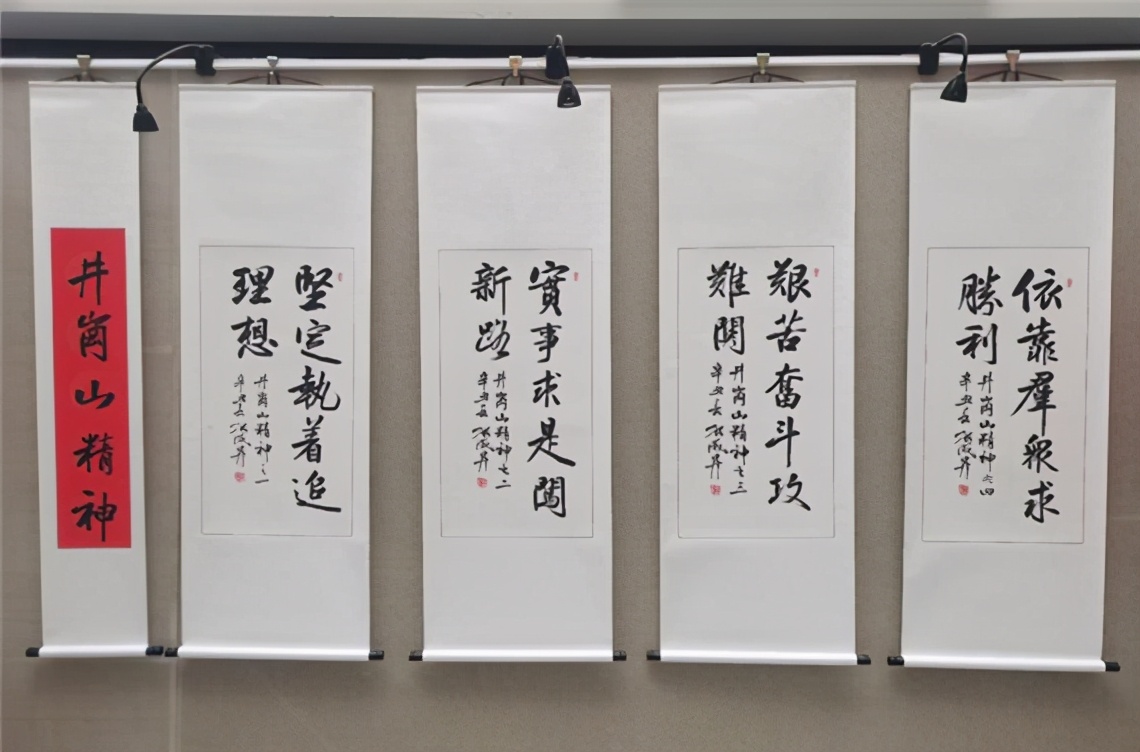 井崗山精神
堅定執着追
理想
井崗山精神之一
辛丑春
實事求是闖
新路
井崗山精神之二
辛丑春
艱苦奮斗攻
難関
井崗山精神之三
辛丑春
依靠羣眾求
勝利
井崗山精神之四
辛丑春